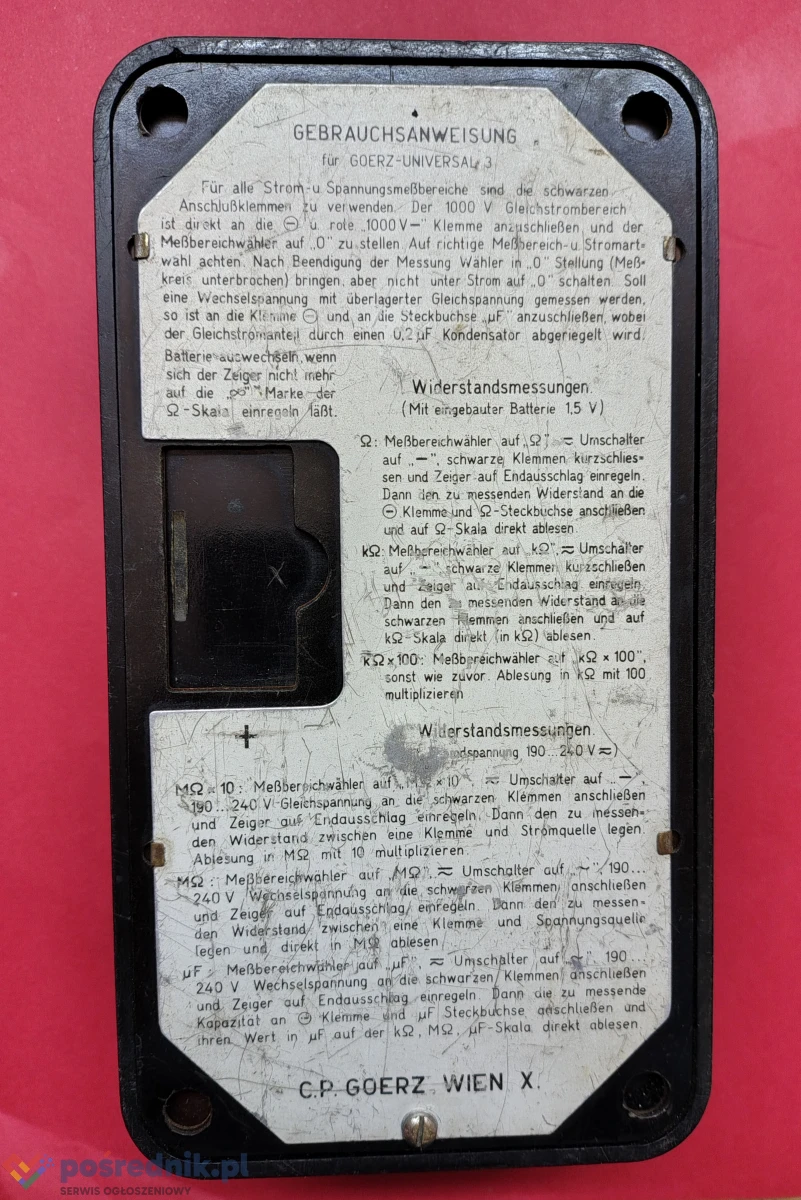 GEBRAUCHSANWEISUNG
für GOERZ-UNIVERSAL 3
Für alle Strom-u Spannungsmeßbereiche sind die schwarzen
Anschlußklemmen zu verwenden. Der 1000 V Gleichstrombereich
ist direkt an die ⊖ u. rote „1000 V—" Klemme anzuschließen und der
Meßbereichwähler auf „0" zu stellen. Auf richtige Meßbereich-u. Stromart=
wahl achten. Nach Beendigung der Messung Wähler in „0" Stellung (Meß=
kreis unterbrochen) bringen, aber nicht unter Strom auf „0" schalten. Soll
eine Wechselspannung mit überlagerter Gleichspannung gemessen werden,
so ist an die Klemme ⊖ und an die Steckbuchse „µF" anzuschließen, wobei
der Gleichstromanteil durch einen 0,2 µF Kondensator abgeriegelt wird.
Batterie auswechseln, wenn
sich der Zeiger nicht mehr
auf die „∞" Marke der
Ω-Skala einregeln läßt.
Widerstandsmessungen.
(Mit eingebauter Batterie 1,5 V)
Ω: Meßbereichwähler auf „Ω", ≂ Umschalter
auf „—", schwarze Klemmen kurzschlies=
sen und Zeiger auf Endausschlag einregeln.
Dann den zu messenden Widerstand an die
⊖ Klemme und Ω-Steckbuchse anschließen
und auf Ω-Skala direkt ablesen.
kΩ: Meßbereichwähler auf „kΩ", ≂ Umschalter
auf „—" schwarze Klemmen kurzschließen
und Zeiger auf Endausschlag einregeln.
Dann den zu messenden Widerstand an die
schwarzen Klemmen anschließen und auf
kΩ-Skala direkt (in kΩ) ablesen.
kΩ×100: Meßbereichwähler auf „kΩ × 100",
sonst wie zuvor. Ablesung in kΩ mit 100
multiplizieren
X
+
Widerstandsmessungen.
190...240 V ≂)
MΩ × 10: Meßbereichwähler auf „MΩ × 10", ≂ Umschalter auf „—",
190...240 V Gleichspannung an die schwarzen Klemmen anschließen
und Zeiger auf Endausschlag einregeln. Dann den zu messen=
den Widerstand zwischen eine Klemme und Stromquelle legen.
Ablesung in MΩ mit 10 multiplizieren.
MΩ: Meßbereichwähler auf „MΩ", ≂ Umschalter auf „~", 190...
240 V Wechselspannung an die schwarzen Klemmen anschließen
und Zeiger auf Endausschlag einregeln. Dann den zu messen=
den Widerstand zwischen eine Klemme und Spannungsquelle
legen und direkt in MΩ ablesen
µF: Meßbereichwähler auf „µF", ≂ Umschalter auf „~", 190...
240 V Wechselspannung an die schwarzen Klemmen anschließen
und Zeiger auf Endausschlag einregeln. Dann die zu messende
Kapazität an ⊖ Klemme und µF Steckbuchse anschließen und
ihren Wert in µF auf der kΩ, MΩ, µF-Skala direkt ablesen.
C.P. GOERZ WIEN X.
posrednik.pl
SERWIS OGŁOSZENIOWY